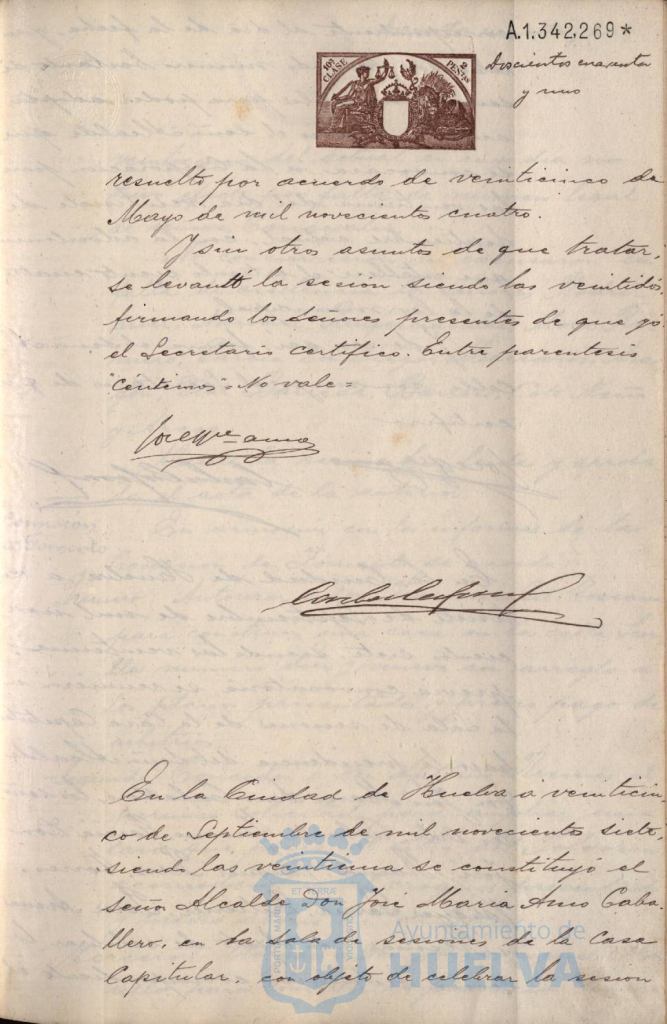 A.1.342,269*
10ª CLASE
2 PESTAS
Doscientos cuarenta
y uno
resuelto por acuerdo de veinticinco de
Mayo de mil novecientos cuatro.
Y sin otros asuntos de que tratar,
se levantó la sesión siendo las veintidos,
firmando los señores presentes de que yó
el Secretario certifico. Entre parentesis
"céntimos" = No vale =
En la Ciudad de Huelva á veinticin
co de Septiembre de mil novecientos siete,
siendo las veintiuna se constituyó el
señor Alcalde Don José Maria Amo Caba-
llero, en la Sala de sesiones de la Casa
Capitular, con objeto de celebrar la sesión
Ayuntamiento de
HUELVA